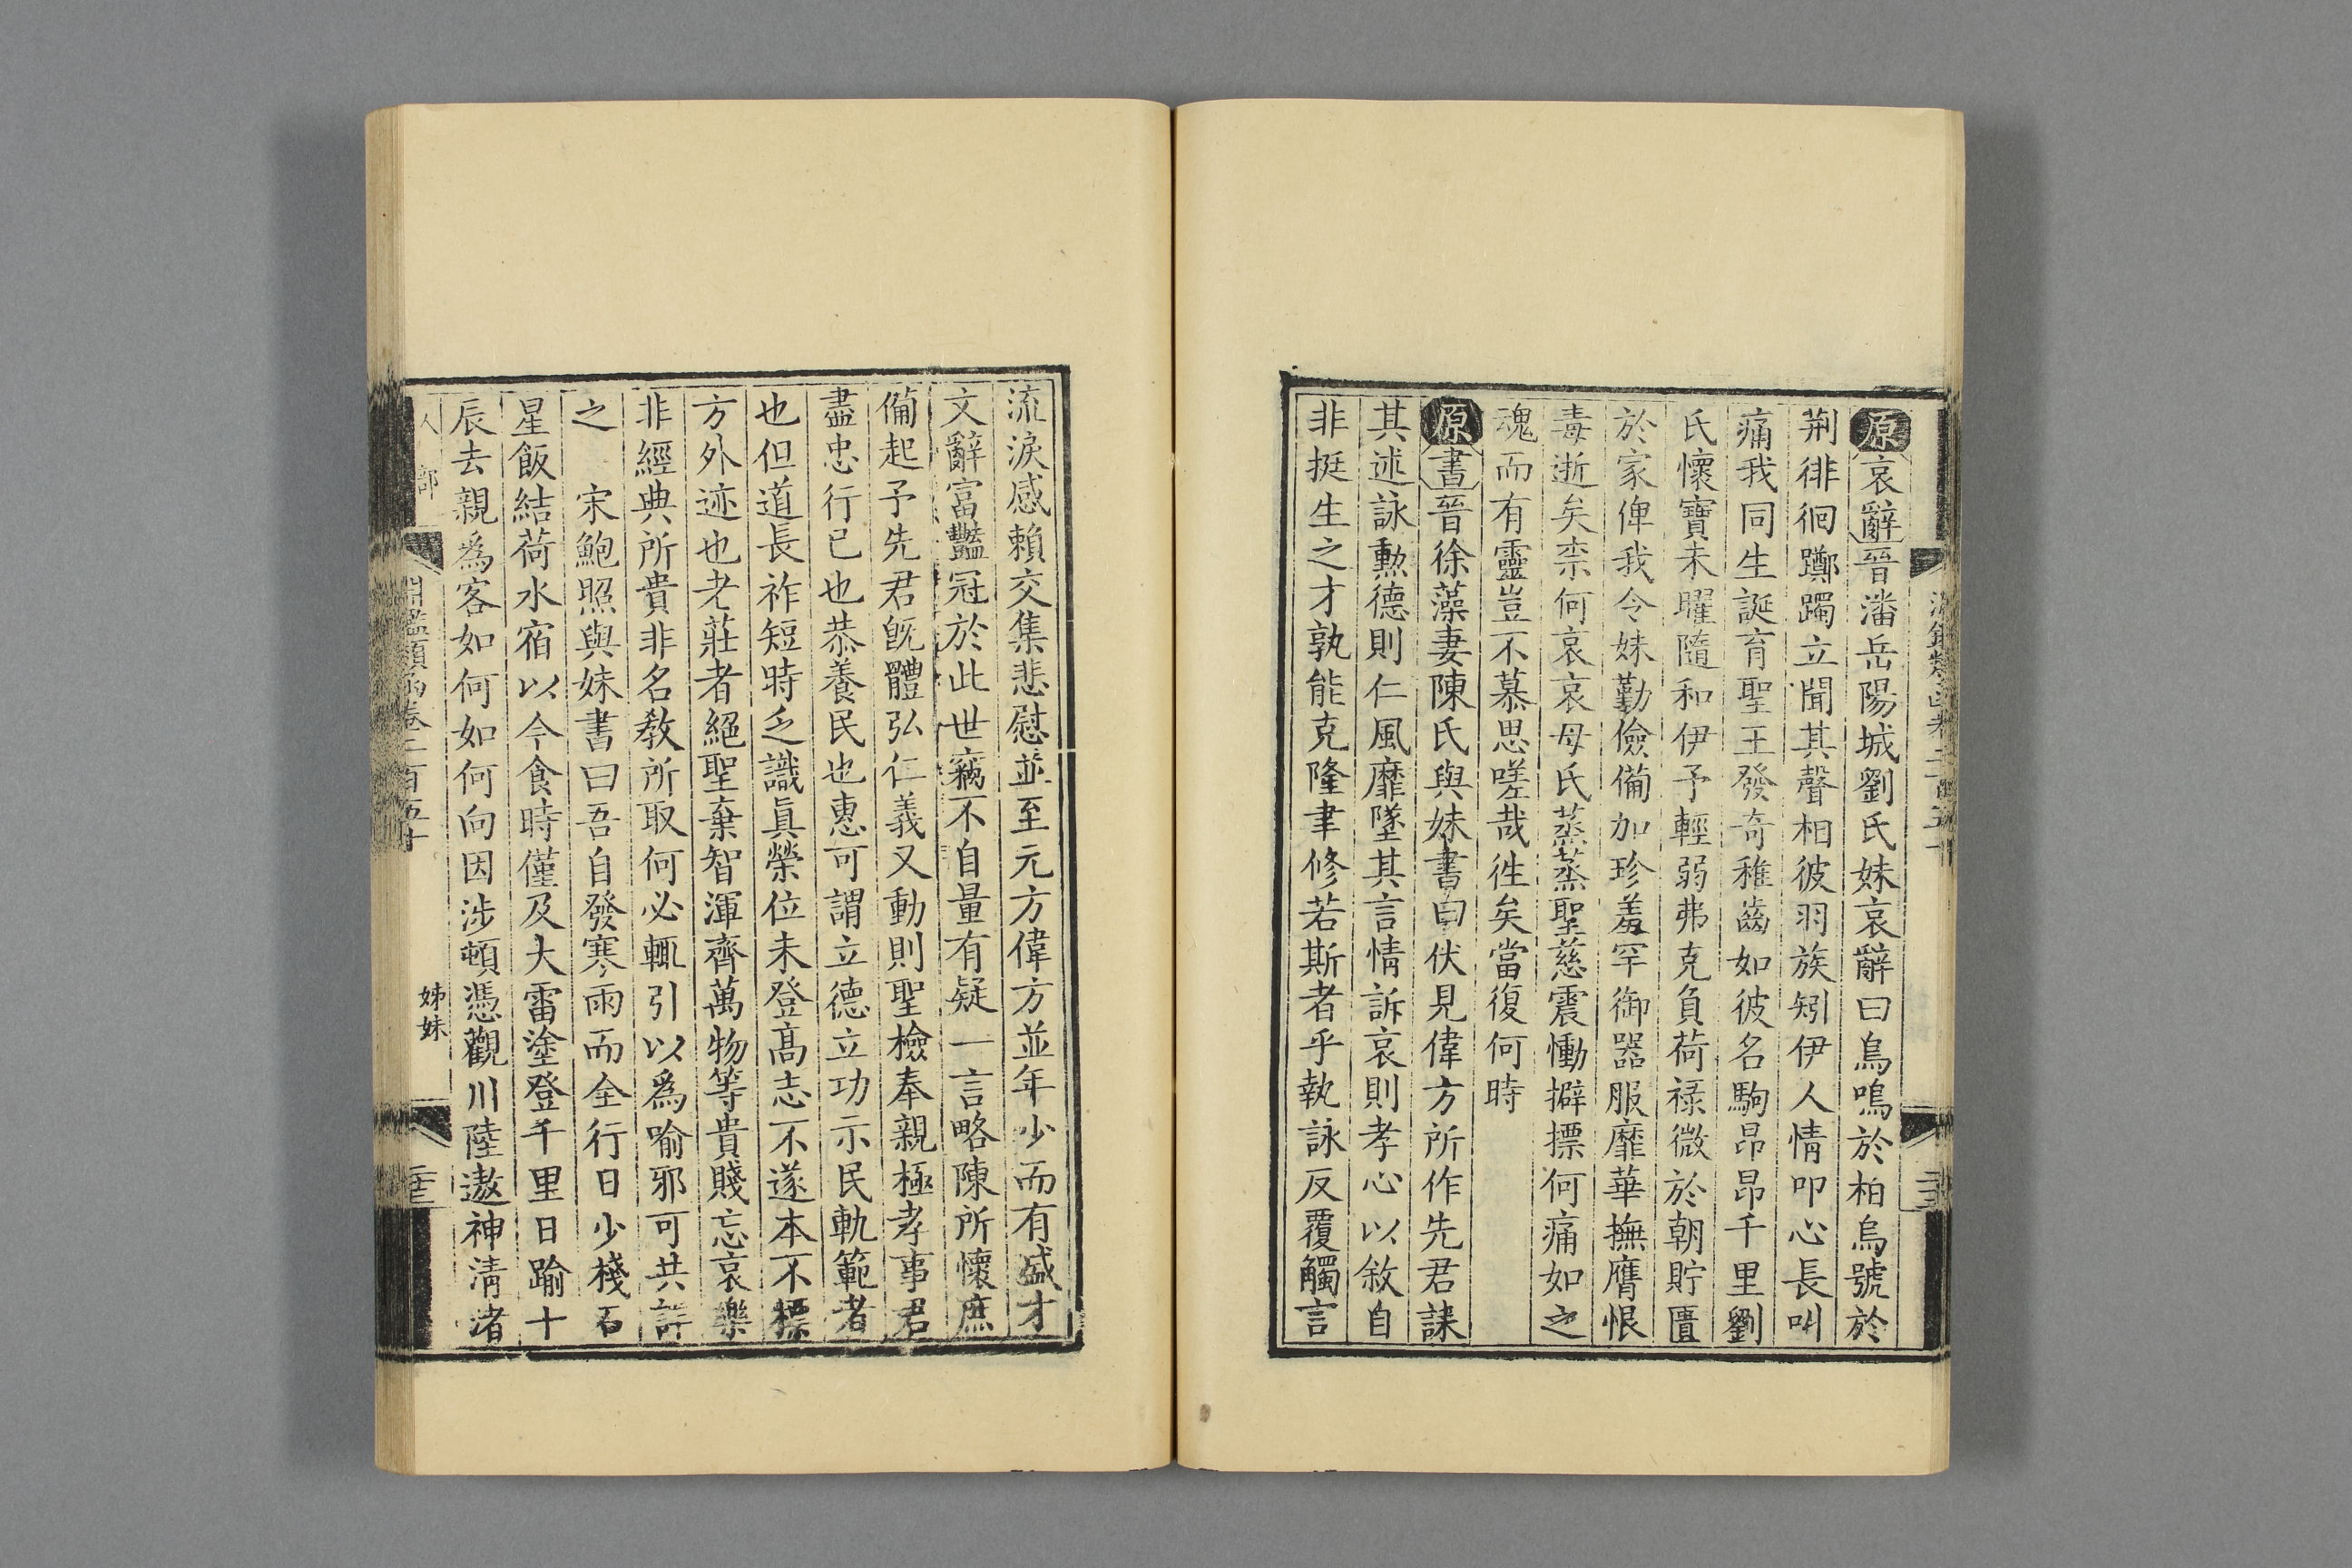 原哀辭晉潘岳陽城劉氏妹哀辭曰鳥鳴於柏烏號於
荆徘徊躑躅立聞其聲相彼羽族矧伊人情叩心長叫
痛我同生誕育聖王發奇稚齒如彼名駒昂昂千里劉
氏懷寶未曜隨和伊予輕弱弗克負荷祿微於朝貯匱
於家俾我令妹勤儉備加珍羞罕御器服靡華撫膺恨
毒逝矣柰何哀哀母氏蒸蒸聖慈震慟擗摽何痛如之
魂而有靈豈不慕思嗟哉徃矣當復何時
原書晉徐藻妻陳氏與妹書曰伏見偉方所作先君誄
其述詠勲德則仁風靡墜其言情訴哀則孝心以敘自
非挺生之才孰能克隆聿修若斯者乎執詠反覆觸言
流淚感賴交集悲慰並至元方偉方並年少而有盛才
文辭富豔冠於此世竊不自量有疑一言略陳所懷庶
備起予先君旣體弘仁義又動則聖檢奉親極孝事君
盡忠行已也恭養民也惠可謂立德立功示民軌範者
也但道長祚短時乏識眞榮位未登高志不遂本不標
方外迹也老莊者絕聖棄智渾齊萬物等貴賤忘哀樂
非經典所貴非名教所取何必輒引以爲喻邪可共詳
之　宋鮑照與妹書曰吾自發寒雨而全行日少棧石
星飯結荷水宿以今食時僅及大雷塗登千里日踰十
辰去親爲客如何如何向因涉頓憑觀川陸遨神清渚
人部
淵鑑類函卷二百五十
姊妹